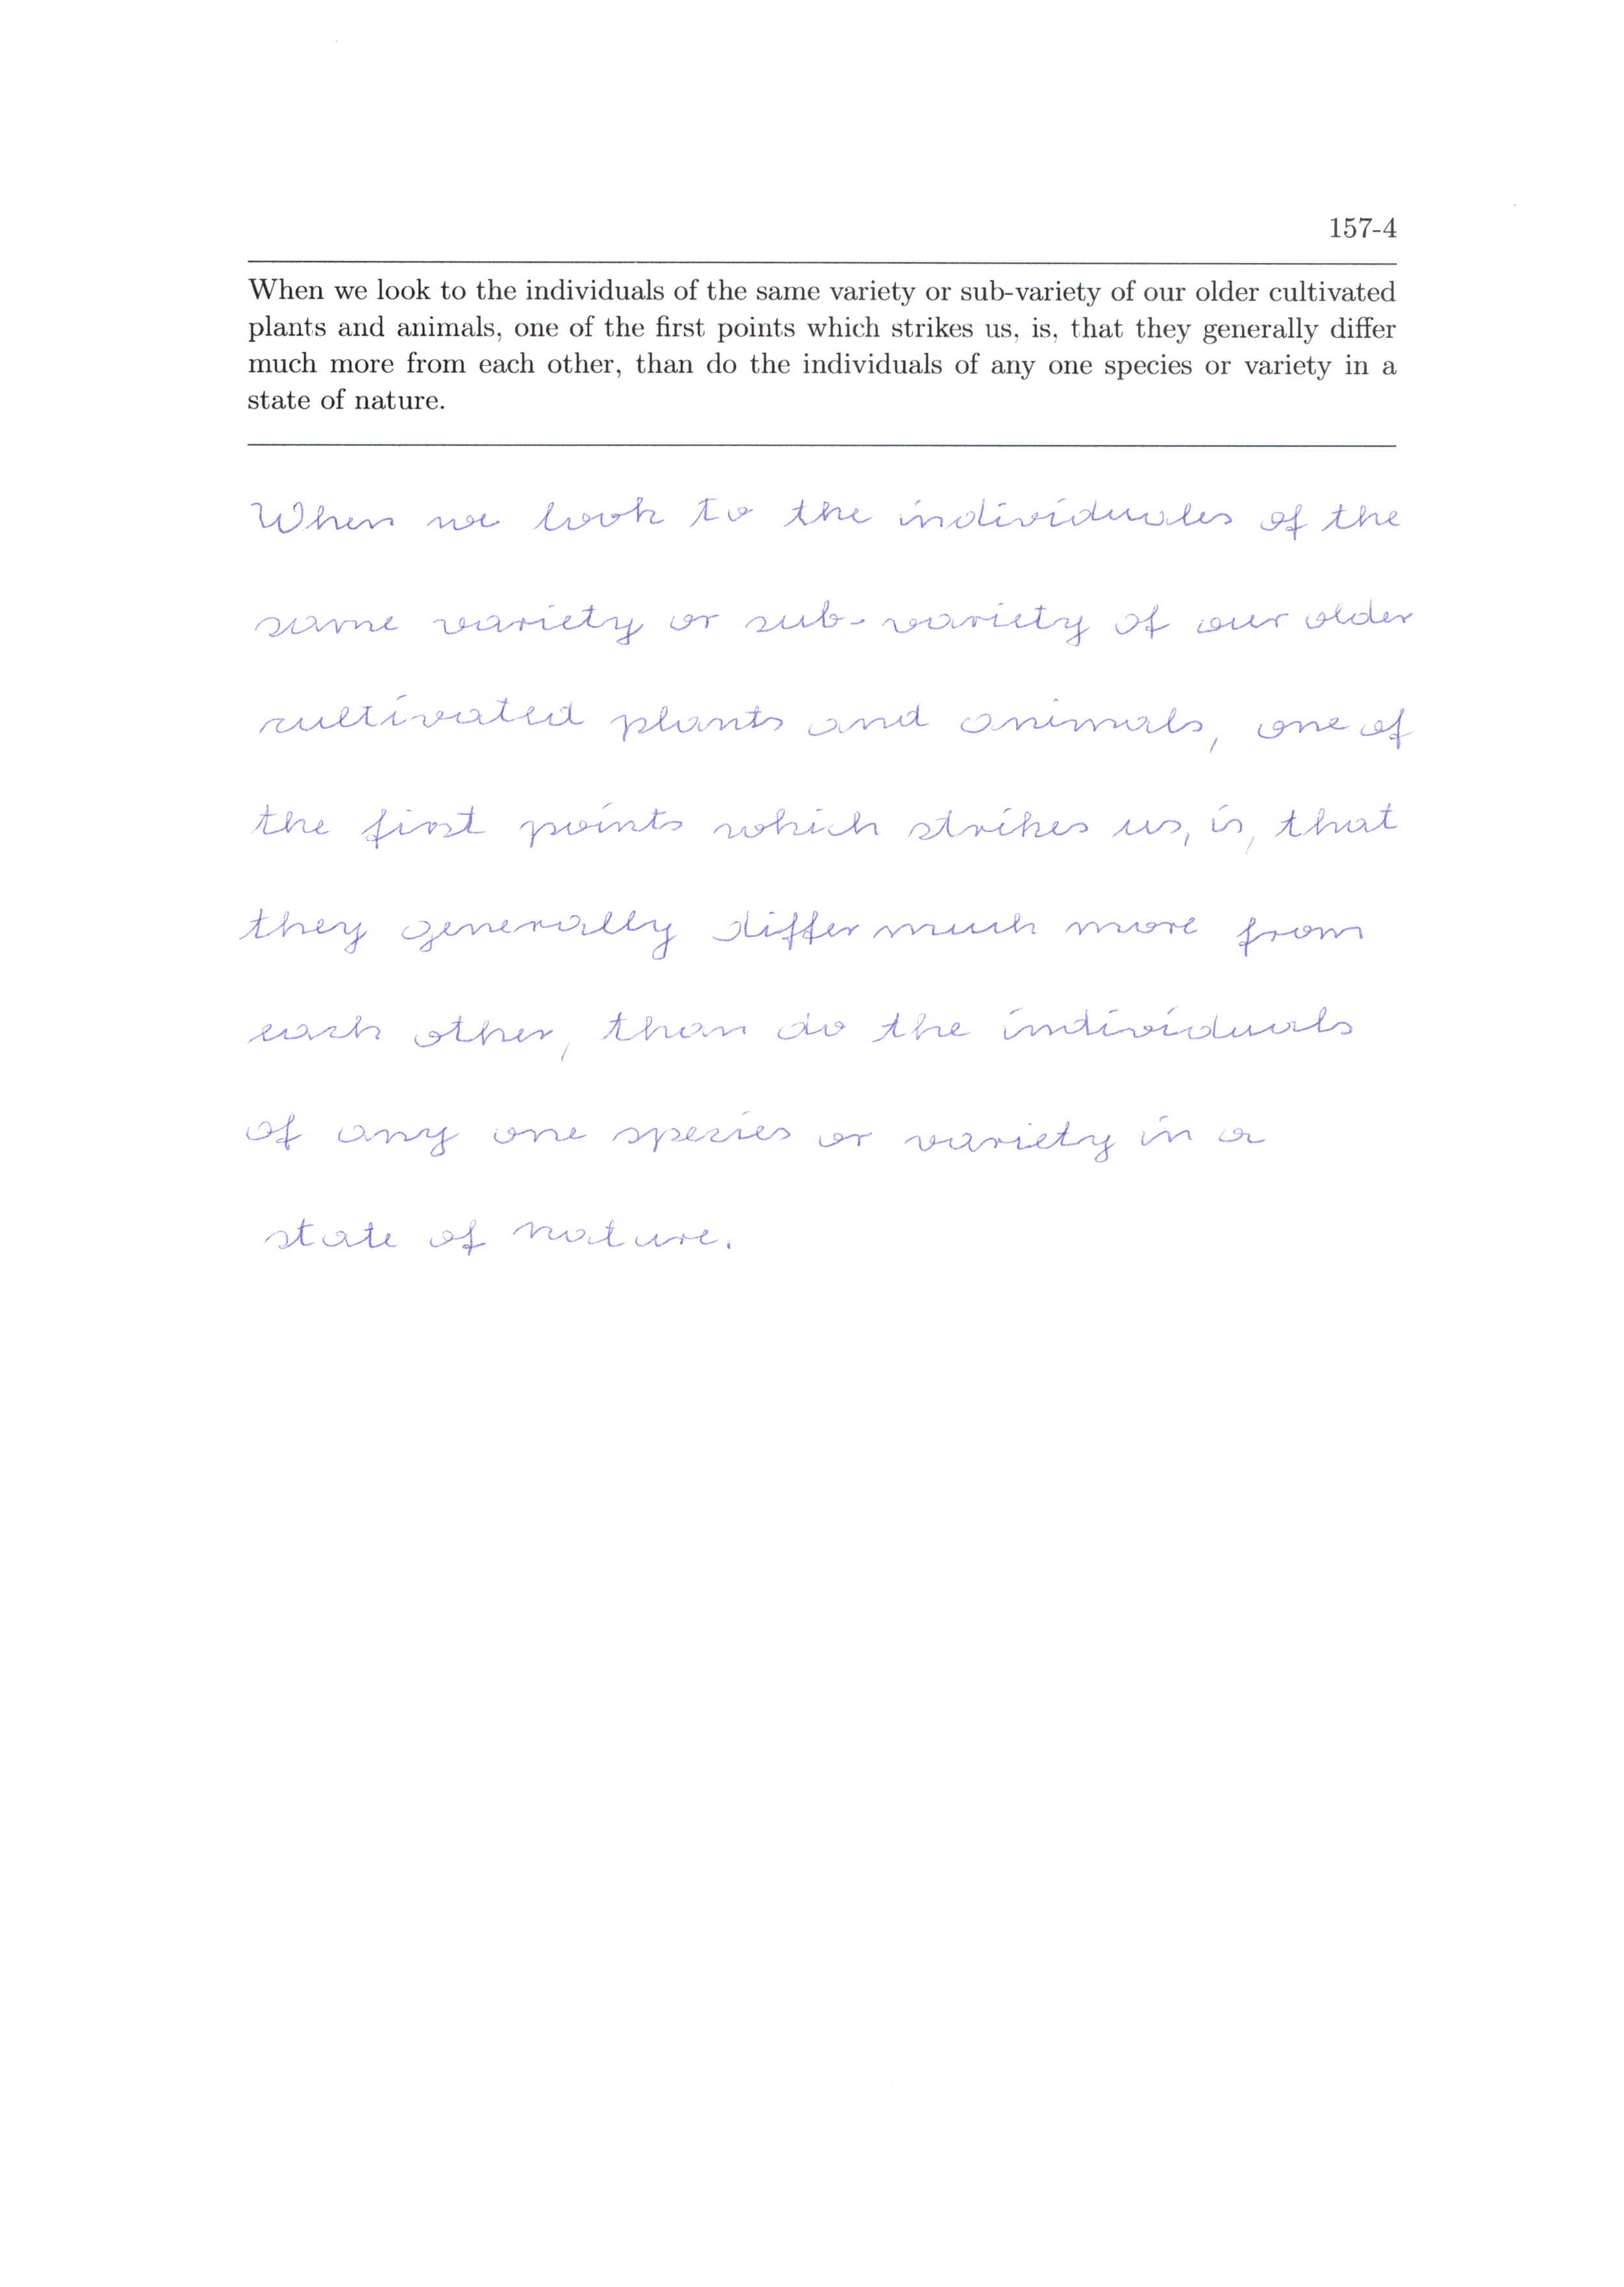 157-4
When we look to the individuals of the same variety or sub-variety of our older cultivated
plants and animals, one of the first points which strikes us, is, that they generally differ
much more from each other, than do the individuals of any one species or variety in a
state of nature.
When we look to the individuales of the
same variety or sub-variety of our older
cultivated plants and animals, one of
the first points which strikes us, is, that
they generally differ much more from
each other, than do the individuals
of any one species or variety in a
state of nature.